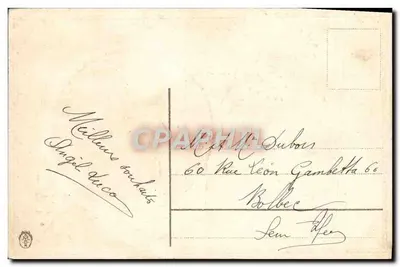 Meilleurs souhaits
Angèl Luco
CARTHAPHILA
M et Me Dubois
60 Rue Léon Gambetta 60
Bolbec
Sein Infre